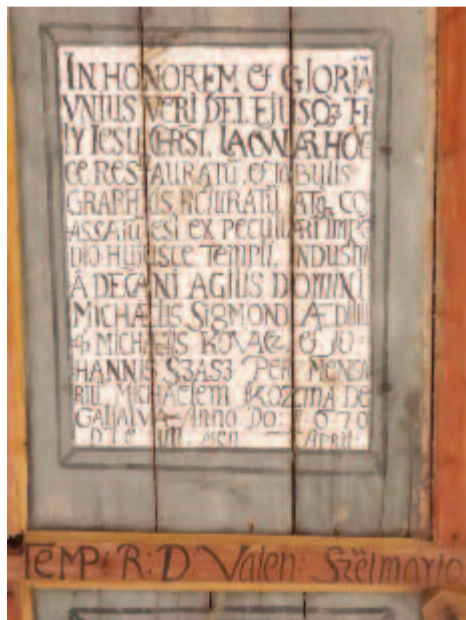 IN HONOREM & GLORIĀ
VNIUS VERI DEI EJUSQ3 FI
LY IESU CHRSI. LAQVEAR HOC
CE RESTAURATŪ & TABULIS
GRAPHICIS FIGURATŪ ATQ3 CO
ASSATŪ EST EX PECULIARI IMPĒ
DIO HUIUSCE TEMPLI. INDUSTRI
Â DECANI AGILIS DOMINI
MICHAELIS SIGMOND ÆDILIU
MICHAELIS KOVACZ & JO
HANNIS SZASZ PER MENSA
RIU MICHAELEM KOZMA DE
GALFALVA ANNO DO: 1670
DIE MEN APRIL:
TEMP: R: D: Valen: Szëlmarto